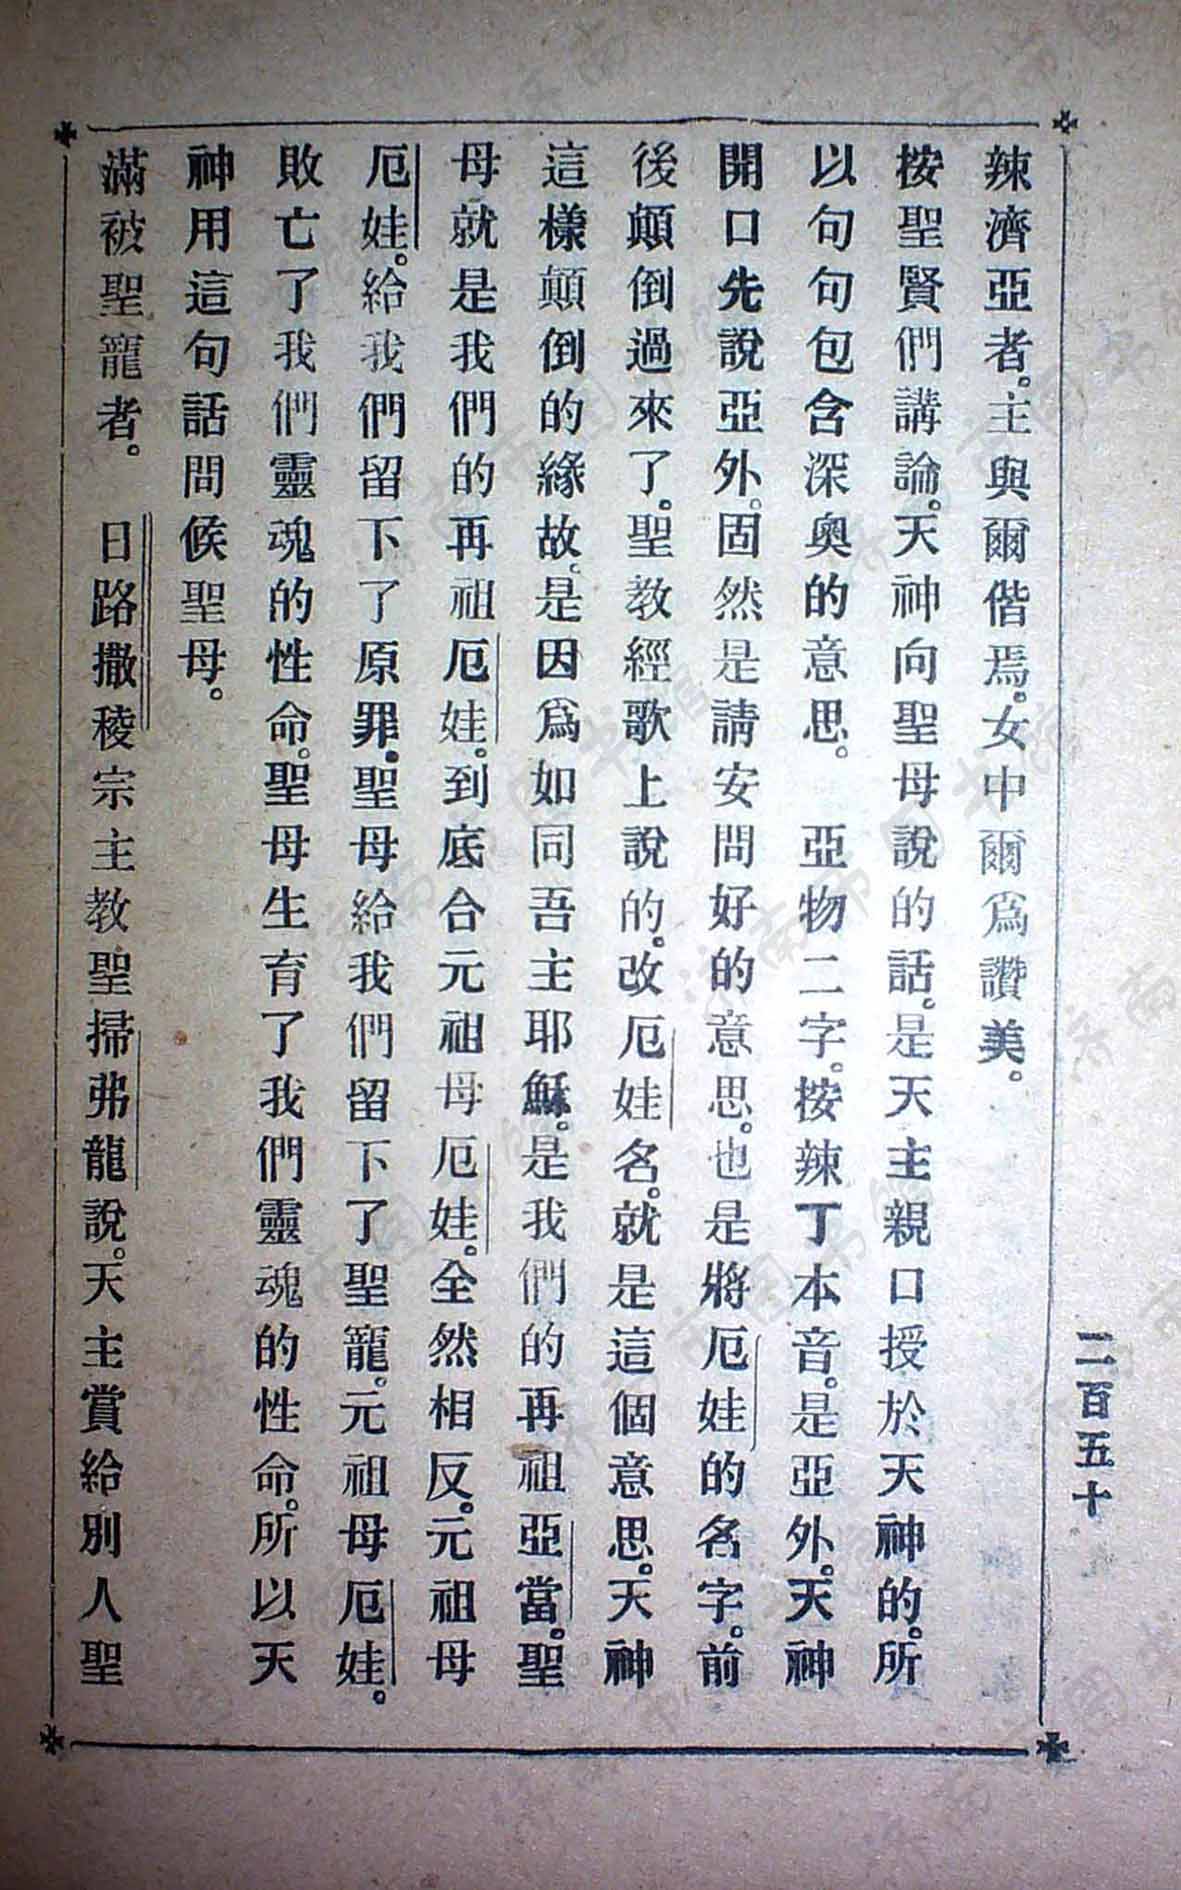 二百五十
辣濟亞者。主與爾偕焉。女中爾爲讚美。
按聖賢們講論。天神向聖母說的話。是天主親口授於天神的。所
以句句包含深奥的意思。亞物二字。按辣丁本音。是亞外。天神
開口先說亞外。固然是請安問好的意思。也是將厄娃的名字。前
後顛倒過來了。聖教經歌上說的。改厄娃名。就是這個意思。天神
這樣顛倒的緣故。是因爲如同吾主耶穌。是我們的再祖亞當。聖
母就是我們的再祖厄娃。到底合元祖母厄娃。全然相反。元祖母
厄娃。給我們留下了原罪。聖母給我們留下了聖寵。元祖母厄娃。
敗亡了我們靈魂的性命。聖母生育了我們靈魂的性命。所以天
神用這句話問候聖母。
滿被聖寵者。 日路撒稜宗主教聖掃弗龍說。天主賞給別人聖